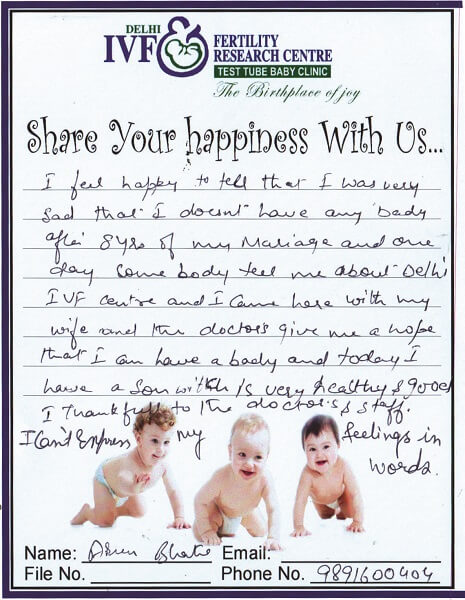 DELHI
IVF & FERTILITY
RESEARCH CENTRE
TEST TUBE BABY CLINIC
The Birthplace of joy
Share Your happiness With Us...
I feel happy to tell that I was very
Sad that I doesnt have any bady
after 8 yrs of my Mariage and one
day Some body tell me about Delhi
IVF Centre and I Came here with my
wife and the doctors give me a hope
that I can have a bady and today I
have a Son witch is very healthy & good
I Thankfull to the doctors & staff.
I Can't Express my feelings in
words.
Name: Bhatia Email:
File No. Phone No. 9891600404